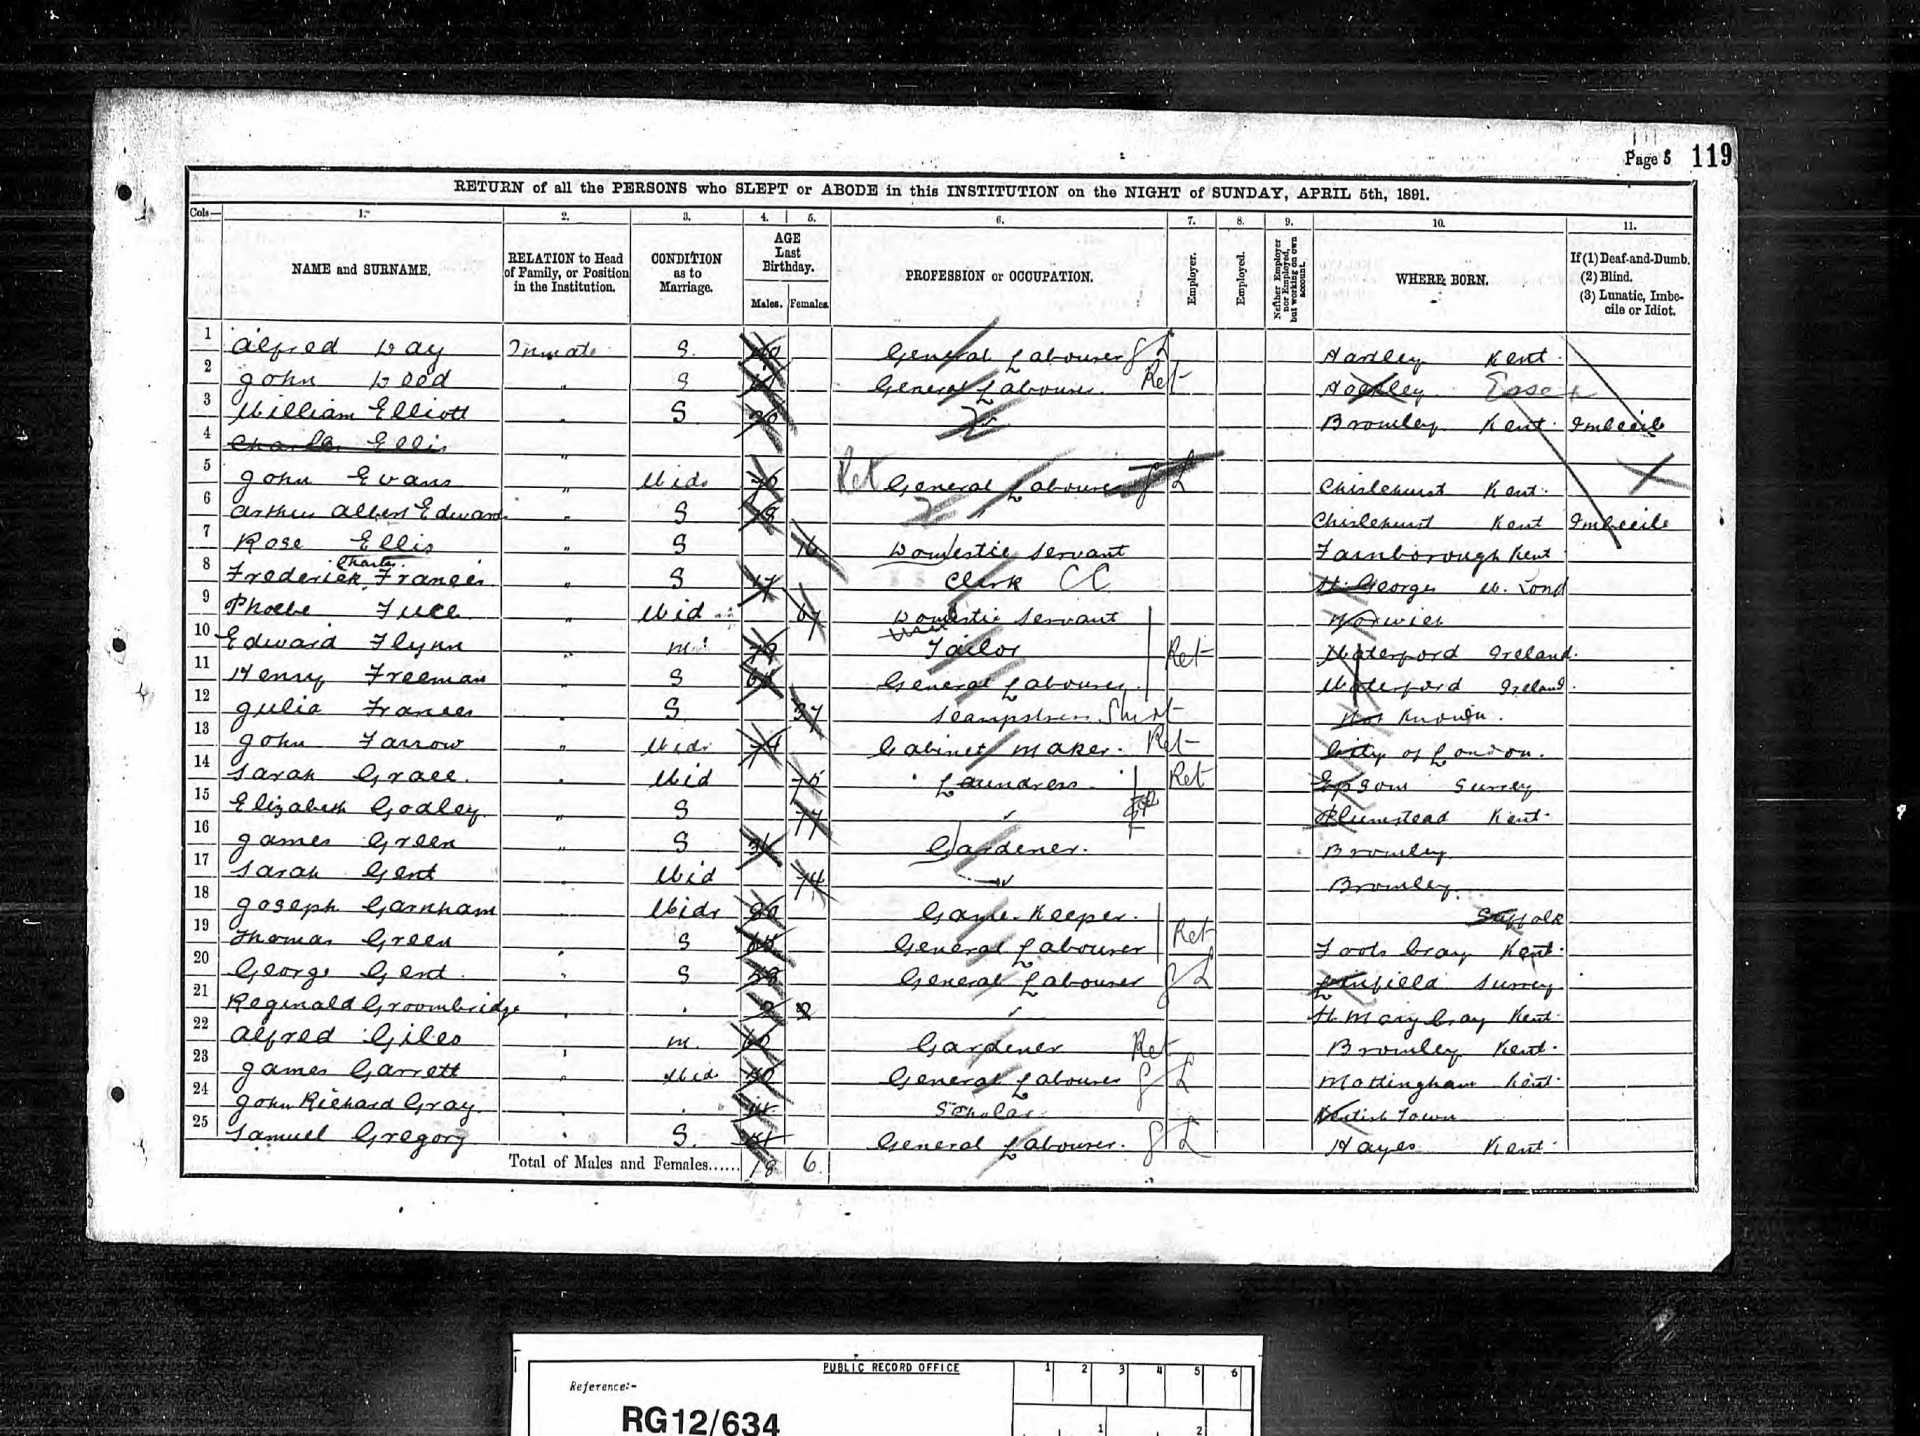 Page 5 119
RETURN of all the PERSONS who SLEPT or ABODE in this INSTITUTION on the NIGHT of SUNDAY, APRIL 5th, 1891.
Cols— 1. 2. 3. 4. 5. 6. 7. 8. 9. 10. 11.
NAME and SURNAME. RELATION to Head of Family, or Position in the Institution. CONDITION as to Marriage. AGE Last Birthday. Males. Females. PROFESSION or OCCUPATION. Employer. Employed. Neither Employer nor Employed, but working on own account. WHERE BORN. If (1) Deaf-and-Dumb. (2) Blind. (3) Lunatic, Imbecile or Idiot.
1 Alfred Day Inmate S. General Labourer G L Kent
2 John S General Labourer Ret Essex
3 William Elliott " S Bromley Kent Imbecile
4 Charles Ellis "
5 John Evans " Widr 76 Ret General Labourer G L Chislehurst Kent
6 Arthur Albert Edwards " S " Chislehurst Kent Imbecile
7 Rose Ellis " S 16 Domestic Servant Farnborough Kent
8 Frederick Charles Francis " S 17 Clerk CC St. Georges W. Lond
9 Phoebe " Wid 67 Domestic Servant Norwich
10 Edward Flynn " M 79 Tailor Ret Waterford Ireland
11 Henry Freeman " S General Labourer Waterford Ireland
12 Julia Frances " S 37 Seampstress Shirt Not Known
13 John Farrow " Widr 74 Cabinet Maker Ret City of London
14 Sarah Grace " Wid 75 Laundress Ret Epsom Surrey
15 Elizabeth Godley " S 77 " Plumstead Kent
16 James Green " S Gardener Bromley
17 Sarah Gent " Wid 74 " Bromley
18 Joseph Garnham " Widr 80 Game Keeper Ret Suffolk
19 Thomas Green " S General Labourer Foots Cray Kent
20 George Gent " S General Labourer G L Surrey
21 Reginald Groombridge " " St Mary Cray Kent
22 Alfred Giles " M Gardener Ret Bromley Kent
23 James Garrett " Widr General Labourer G L Mottingham Kent
24 John Richard Gray " Scholar Kentish Town
25 Samuel Gregory " S. General Labourer G L Hayes Kent
Total of Males and Females...... 18 6
PUBLIC RECORD OFFICE 1 2 3 4 5 6
Reference:-
RG12/634
1 2